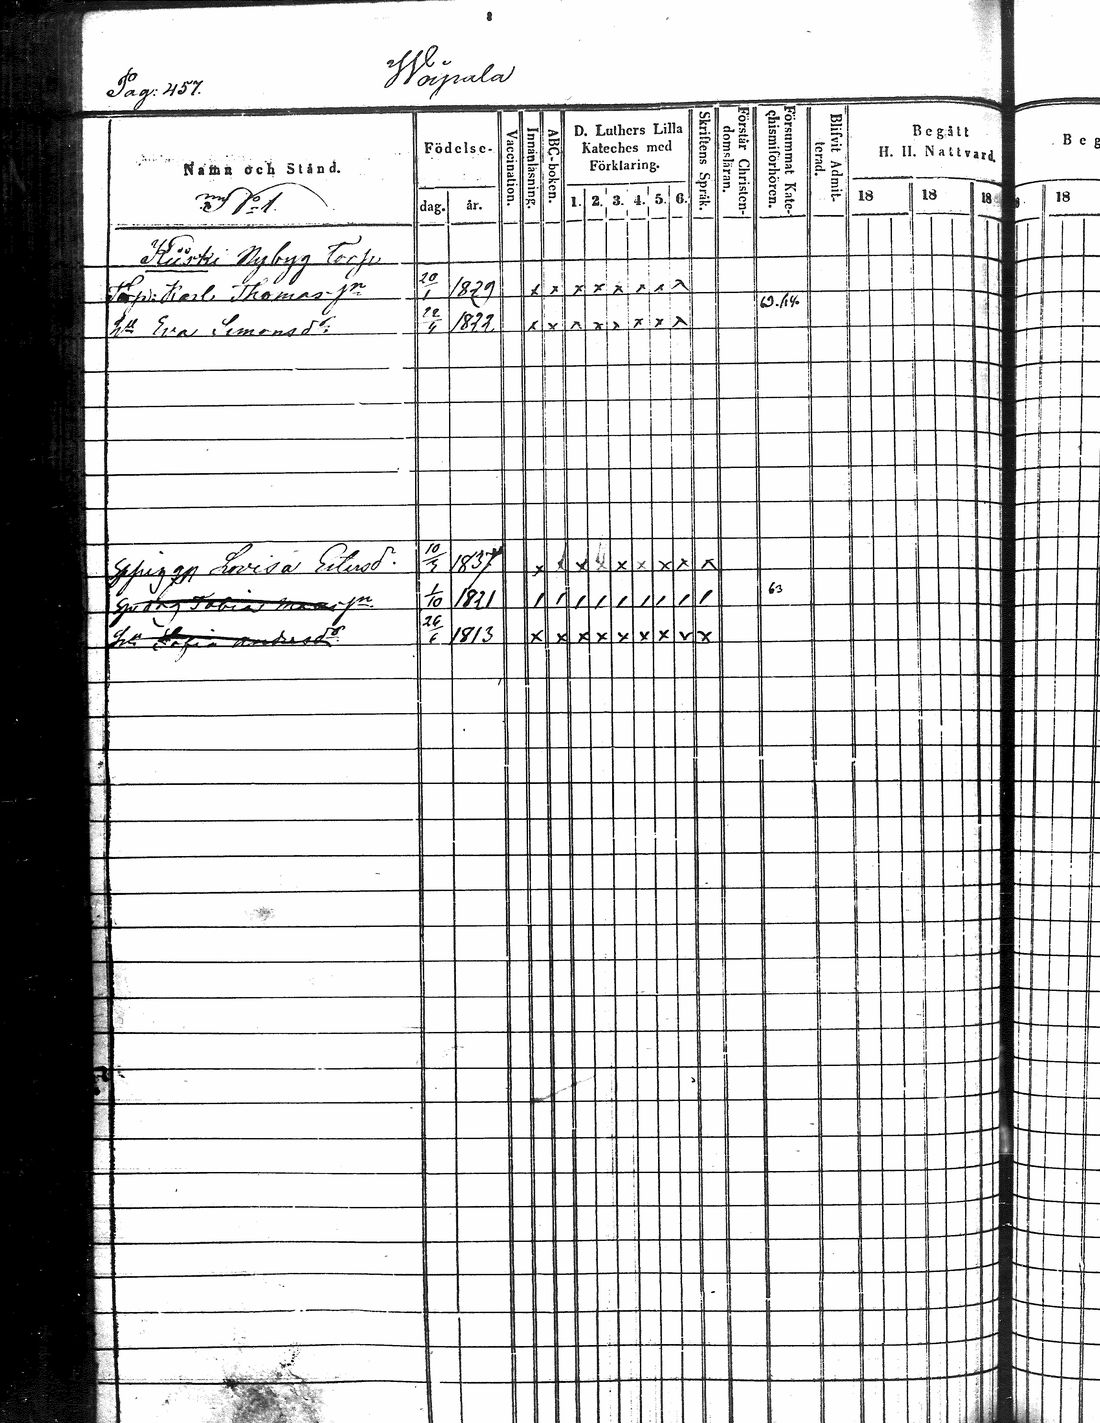 Pag: 457.
Woipala
Namn och Stånd.
No 1.
Födelse-
dag. år.
Vaccination.
Innanläsning.
ABC-boken.
D. Luthers Lilla
Kateches med
Förklaring.
1. 2. 3. 4. 5. 6.
Skriftens Språk.
Förstår Christen-
domsläran.
Försummat Kate-
chismiförhören.
Blifvit Admit-
terad.
Begått
H. H. Nattvard.
18 18 18
Beg
18
Nybyg Torp
Torp: Karl Thomas jn 20/1 1829 x x x x x x x x x
63./64
Hu Eva Simonsdr 22/4 1822 x x x x x x x x x
Lovisa 10/3 1837 x x x x x x x x x
Tobias jn 1/10 1821 / / / / / / / / / 63
Hu Sofia Andersdr 26/6 1813 x x x x x x x v x